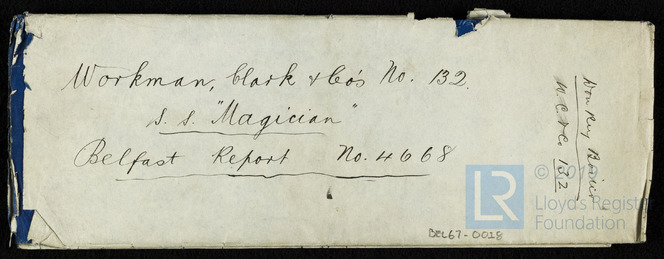 Workman, Clark & Co's No. 132.
s.s. "Magician"
Belfast Report No. 4668
Donkey Boiler
W. C. & Co 132
BEL67-0018
LR
Lloyd's Register
Foundation